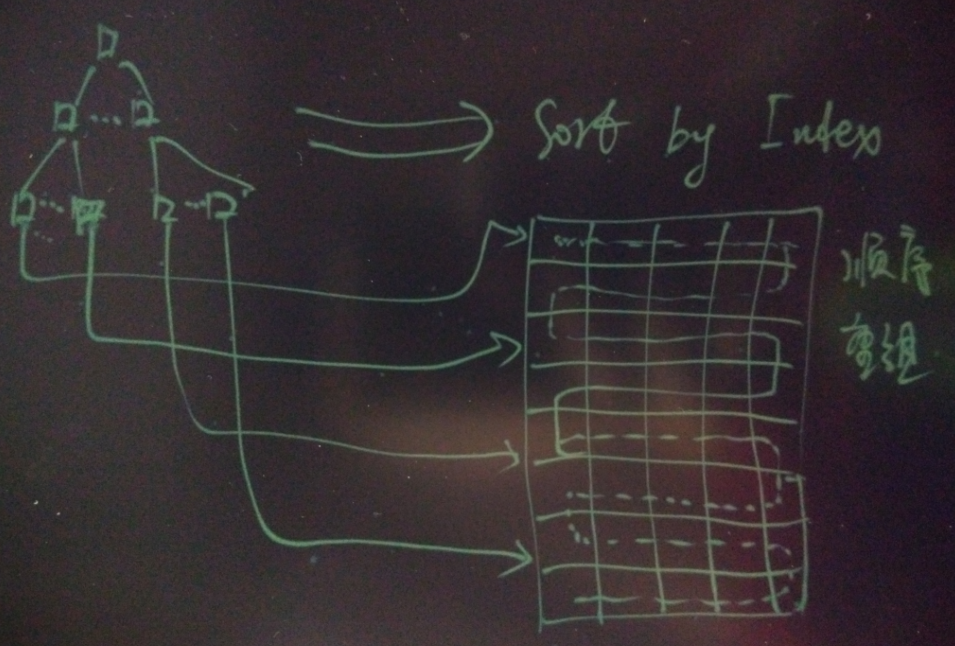 Sort by Index
顺序
重组